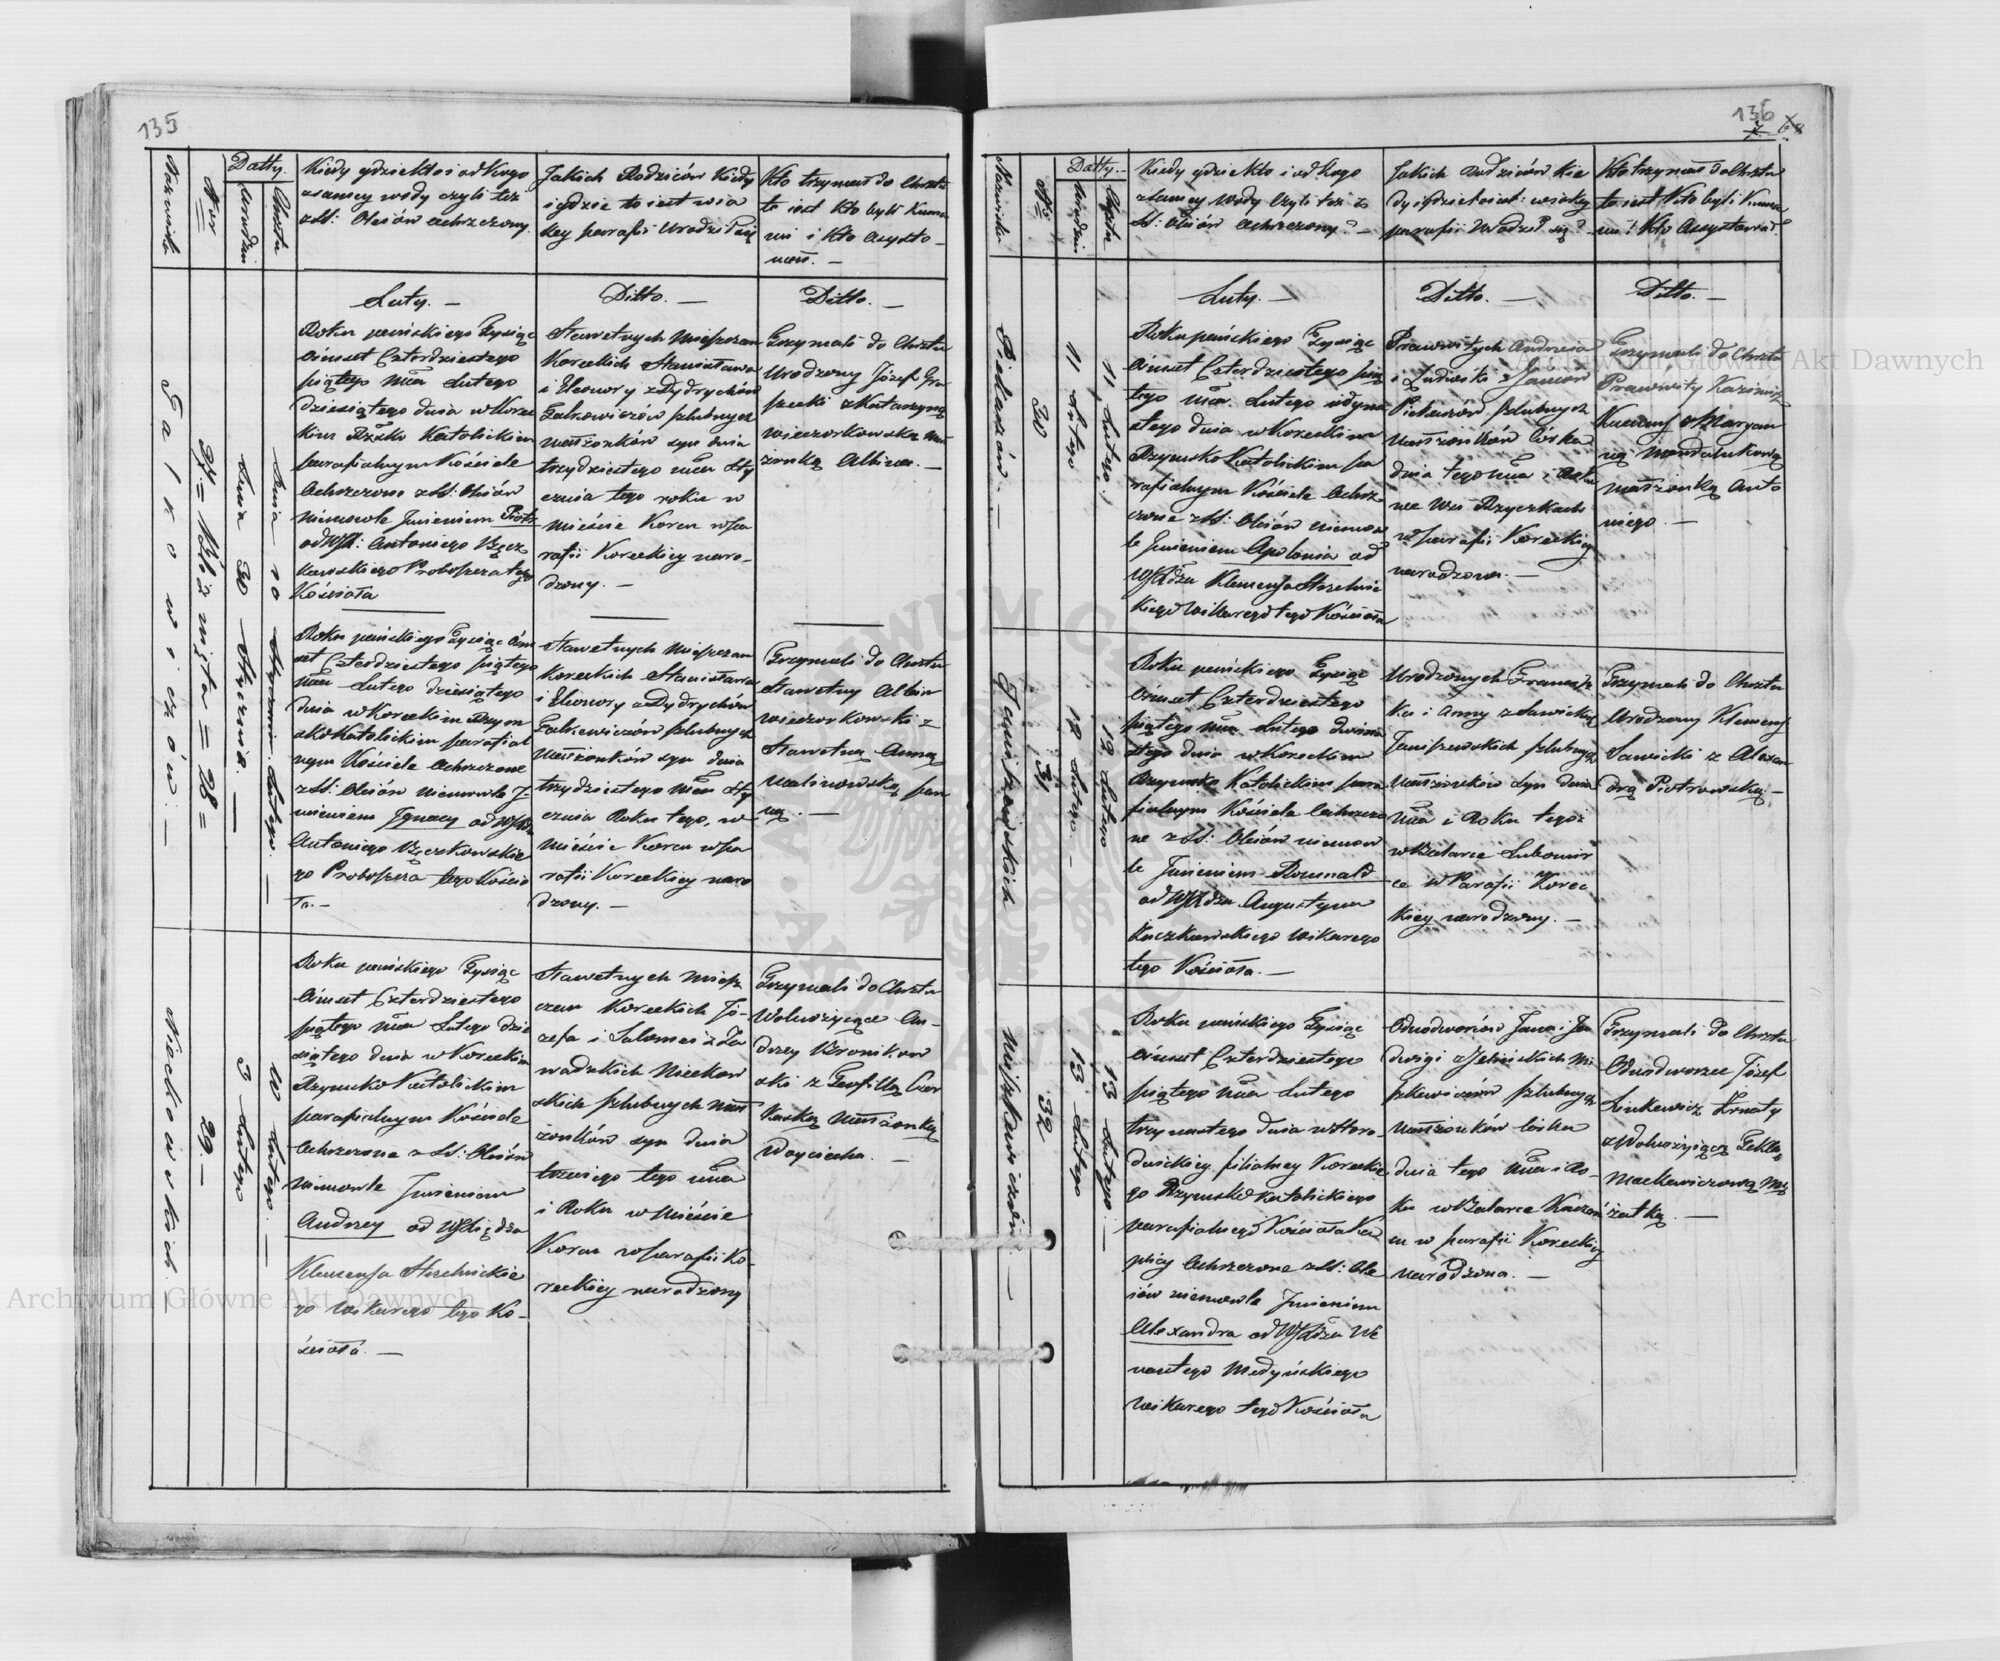 135
Nazwiska
Nr
Datty.
Urodzin
Chrztu
Kiedy gdzie kto i od kogo
z samey wody czyli też
z SS: Oleiów ochrzczony.
Jakich Rodziców kiedy
i gdzie to iest w ia
key parafii Urodził się
Kto trzymał do Chrztu
to iest Kto byli Kuma
mi i Kto Asysto-
wał. —
Galkowiczów. —
27. = Bliźnięta = 28 =
dnia 30 Stycznia. —
dnia 10 Lutego. —
Luty. —
Roku pańskiego Tysiąc
ośmset Czterdziestego
piątego mca Lutego
dziesiątego dnia w Korec
kim Rzsko Katolickim
parafialnym Kościele
Ochrzczone z SS: Oleiów
niemowle Imieniem Piotr
od WJX: Antoniego
Proboszcza tego
Kościoła
Ditto. —
Sławetnych Mieszczan
Koreckich Stanisława
i Eleonory z Dydrychów
Galkowiczów szlubnych
małżonków syn dnia
trzydziestego mca Sty
cznia tego roku w
mieście Korcu w pa
rafii Koreckiey naro-
dzony. —
Ditto. —
Trzymali do Chrztu
Urodzony Józef
z Katarzyną
Wieczorkowską mał
żonką Albina. —
Roku pańskiego Tysiąc ośm
set Czterdziestego piątego
mca Lutego dziesiątego
dnia w Koreckim Rzym
sko Katolickim parafial
nym Kościele Ochrzczone
z SS: Oleiów niemowle I-
mieniem Ignacy od WJXdza
Antoniego
go Proboszcza tego Kościo
ła. —
Sławetnych Mieszczan
Koreckich Stanisława
i Eleonory z Dydrychów
Galkiewiczów szlubnych
Małżonków syn dnia
trzydziestego mca Sty
cznia Roku tego, w
mieście Korcu w pa
rafii Koreckiey naro
dzony. —
Trzymali do Chrztu
Sławetny Albin
Wieczorkowski z
Sławetną Anną
Malinowską pan
ną. —
Nieckowskich
29 —
3 Lutego
10 Lutego. —
Roku pańskiego Tysiąc
ośmset Czterdziestego
piątego mca Lutego dzie
siątego dnia w Koreckim
Rzymsko Katolickim
parafialnym Kościele
Ochrzczone z SS: Oleiów
niemowle Imieniem
Andrzey od WJXiędza
Klemensa Strzelnickie
go Wikarego tego Ko-
ścioła. —
Sławetnych Miesz
czan Koreckich Jó-
zefa i Salomei z Za
wadzkich Nieckow
skich szlubnych mał
żonków syn dnia
trzeciego tego mca
i Roku w Mieście
Korcu w parafii Ko-
reckiey narodzony
Trzymali do Chrztu
An-
drzey Bronikow
ski z Teofillą
małżonką
Woyciecha. —
136
Nazwiska
Nr
Datty. —
Urodzin
Chrztu
Kiedy gdzie kto i od kogo
z samey Wody czyli też z
SS: Oleiów Ochrzczony? —
Jakich Rodziców kie
dy i gdzie to iest: w iakiey
parafii Urodził się? —
Kto trzymał do Chrztu
to iest Kto byli Kuma
mi i Kto Assystował.
Piekarzów. —
30
11 Lutego
11 Lutego.
Luty. —
Roku pańskiego Tysiąc
ośmset Czterdziestego pią
tego mca Lutego iedyna
stego dnia w Koreckim
Rzymsko Katolickim pa
rafialnym Kościele Ochrz
czone z SS: Oleiów niemow
le Imieniem Apolonia od
WJXdza Klemensa Strzelnic
kiego Wikarego tego Kościoła
Ditto. —
Prawowitych Andrzeia
i Ludwiki z
Piekarzów szlubnych
małżonków Córka
dnia tego mca i Roku
we Wsi Rzyczkach
w parafii Koreckiey
narodzona. —
Ditto. —
Trzymali do Chrztu
Prawowity Kazimierz
z Maryan
ną
małżonką Anto
niego. —
Janiszewskich
31
12 Lutego. —
12 Lutego
Roku pańskiego Tysiąc
ośmset Czterdziestego
piątego mca Lutego dwóna
stego dnia w Koreckim
Rzymsko Katolickim para
fialnym Kościele Ochrzczo
ne z SS: Oleiów niemow
le Imieniem Romuald
od WJXdza Augustyna
Wikarego
tego Kościoła. —
Urodzonych Francisz
ka i Anny z Sawickich
Janiszewskich szlubnych
małżonków syn dnia
mca i Roku tegoż
w Lubomir
ce w Parafii Korec
kiey narodzony. —
Trzymali do Chrztu
Urodzony Klemens
Sawicki z Alexan
drą Piotrowską —
Miszkiewiczów. —
32
13 Lutego
13 Lutego. —
Roku pańskiego Tysiąc
ośmset Czterdziestego
piątego mca Lutego
trzynastego dnia w Horo-
dnickiey filialney Koreckie
go Rzymsko Katolickiego
parafialnego Kościoła Ka
plicy Ochrzczone z SS: Ole
iów niemowle Imieniem
Alexandra od WJXdza We
nantego Medyńskiego
Wikarego tego Kościoła
Odnodworców Jana i Ja
dwigi z Mi
szkiewiczów szlubnych
małżonków Córka
dnia tego mca i Ro-
ku w
w parafii Koreckiey
narodzona. —
Trzymali do Chrztu
Odnodworzec Józef
Linkiewicz
Teklą
Mackiewiczową
żatką. —
Archiwum Główne Akt Dawnych
Archiwum Główne Akt Dawnych